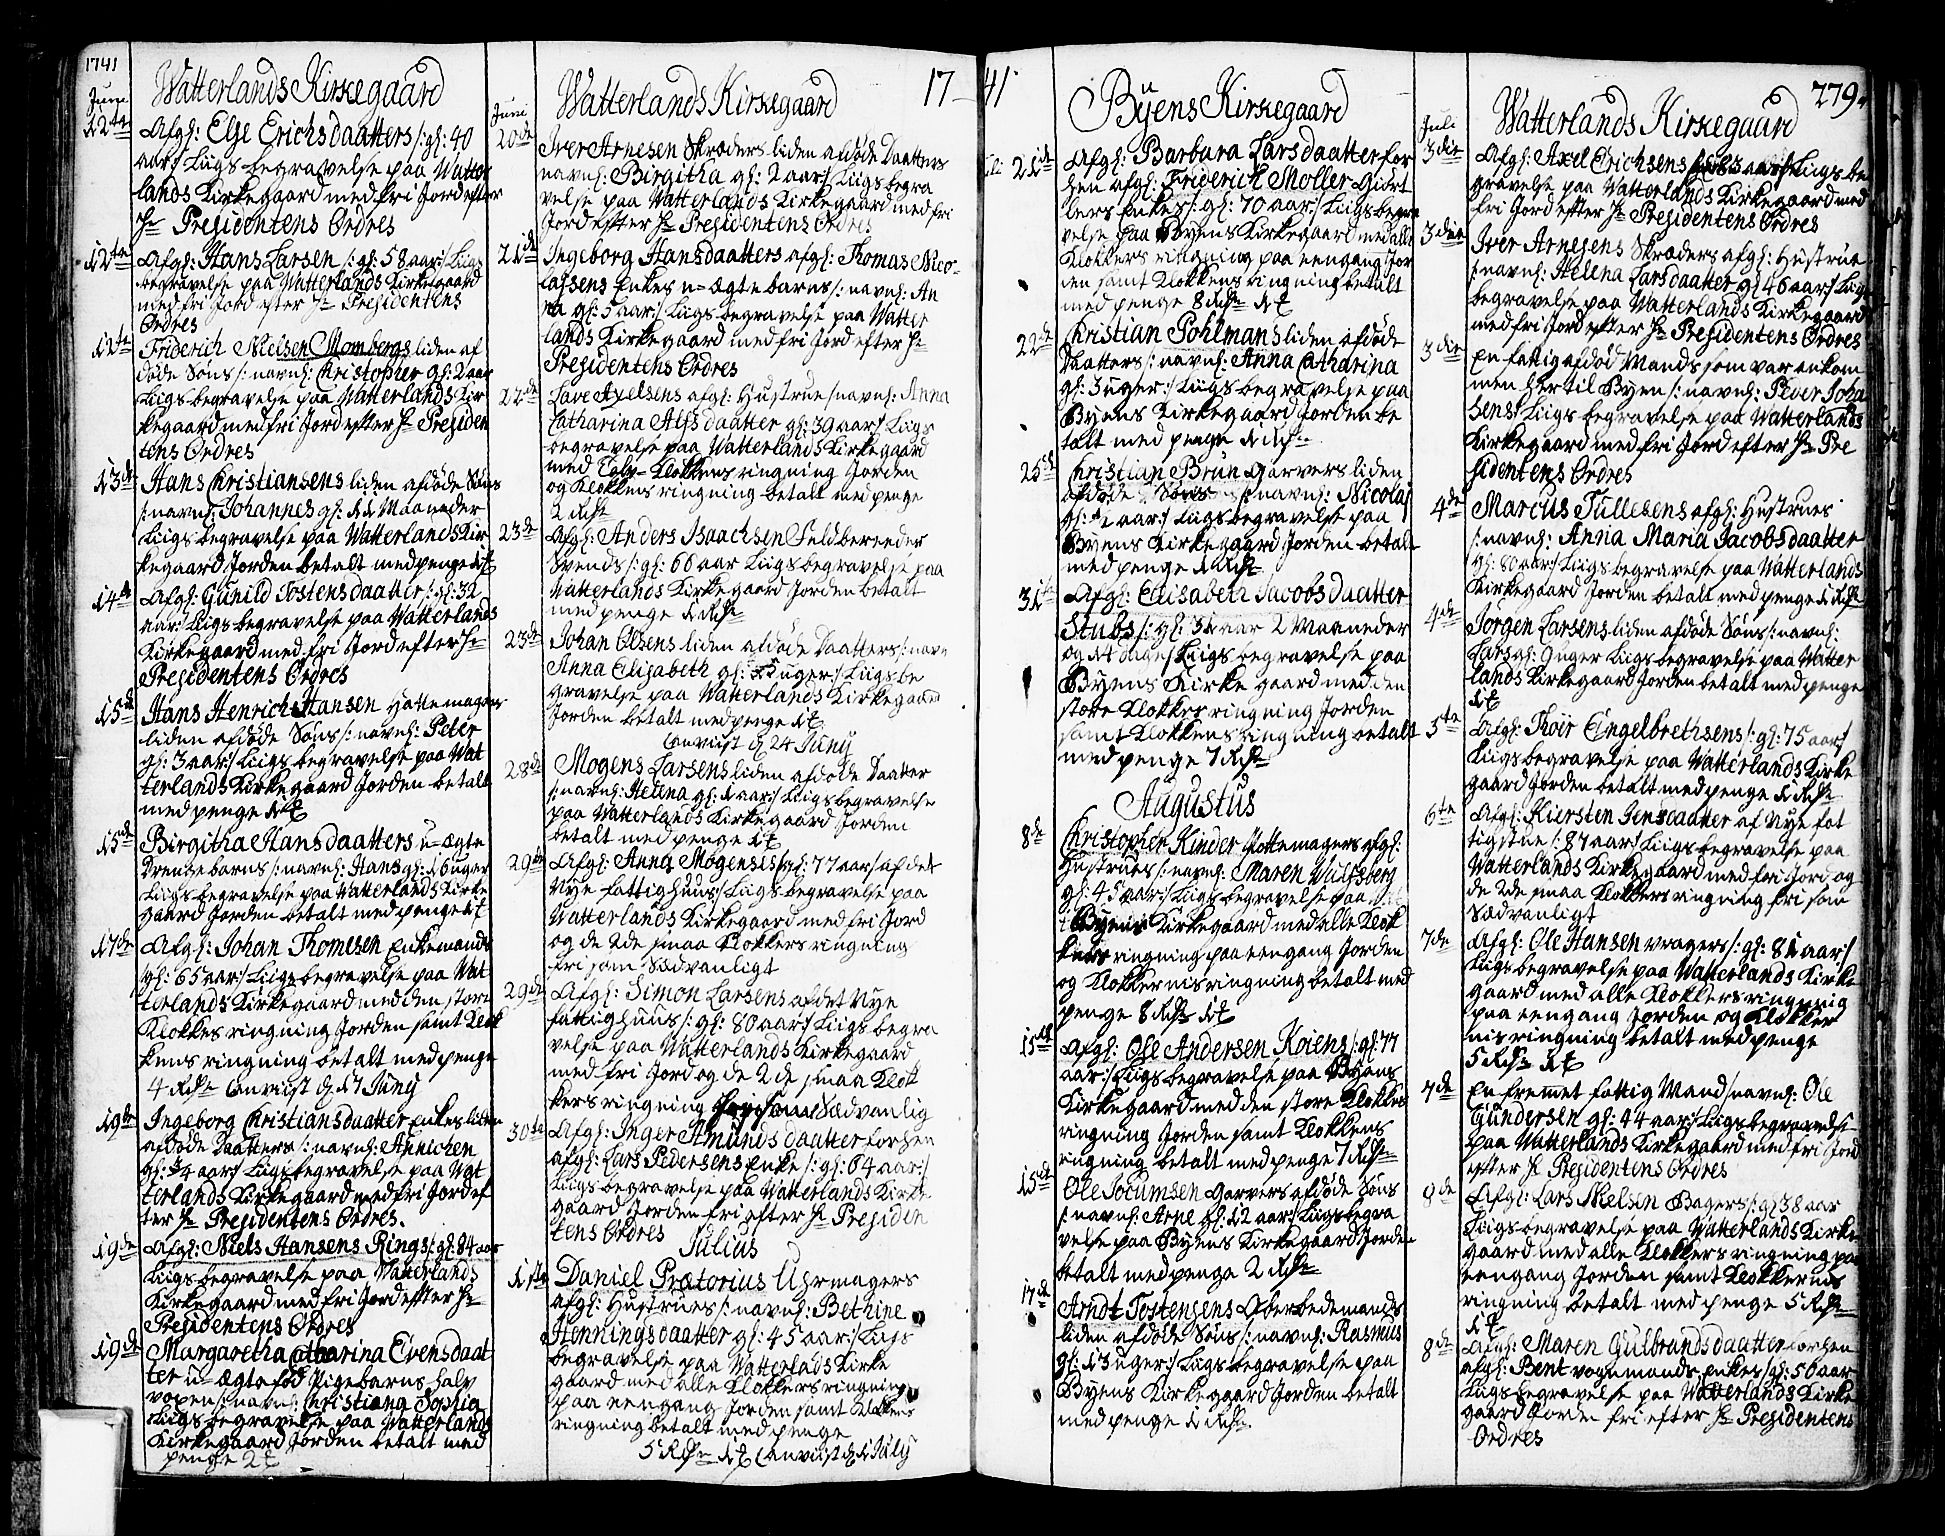 1741
Juni
Watterlands Kirkegaard
12te Afgl: Else Erichsdaatters /: gl: 40
aar:/ Liigs begravelse paa Watter
lands Kirkegaard med fri Jord efter
Hr Presidentens Ordres
12te Afgl: Hans Larsen /: gl: 58 aar:/ Liigs
begravelse paa Watterlands Kirkegaard
med fri Jord efter Hr Presidentens
Ordres
12te Friderich Nielsen Mombergs liden af
døde Søns /: navnl: Christopher gl: 2 aar
Liigs begravelse paa Watterlands Kir
kegaard med fri Jord efter Hr Presiden
tens Ordres
13de Hans Christiansens liden afdøde Søns
/: navnl: Johannes gl: 11 Maaneder
Liigs begravelse paa Watterlands Kir
kegaard Jorden betalt med penge
14de Afgl: Gunild Tostensdaatter /: gl: 32
aar:/ Liigs begravelse paa Watterlands
Kirkegaard med fri Jord efter Hr
Presidentens Ordres
15de Hans Henrich Hansen Hattemagers
liden afdøde Søns /: navnl: Peter
gl: 3 aar:/ Liigs begravelse paa Wat
terlands Kirkegaard Jorden betalt
med penge
15de Birgitha Hansdaatters u-ægte
Drengebarns /: navnl: Hans gl: 16 uger
Liigs begravelse paa Watterlands Kirke
gaard Jorden betalt med penge
17de Afgl: Johan Thomesen Enkemands
gl: 65 aar:/ Liigs begravelse paa Wat
terlands Kirkegaard med den store
Klokkes ringning Jorden samt Klok
kens ringning betalt med penge
4 Rdr Anvist d 17 Juny
19de Ingeborg Christiansdaatter Enkes liden
afdøde Daatters /: navnl: Annichen
gl: 14 aar:/ Liigs begravelse paa Wat
terlands Kirkegaard med fri Jord ef
ter Hr Presidentens Ordres.
19de Afgl: Niels Hansens Rings /: gl: 84 aar
Liigs begravelse paa Watterlands
Kirkegaard med fri Jord efter Hr
Presidentens Ordres
19de Margaretha Catharina Evensdaat
ter u-ægte fød Pigebarns halv
voxen /: navnl: Christiana Sophia
Liigs begravelse paa Watterlands
Kirkegaard Jorden betalt med
penge 2
Watterlands Kirkegaard 17
Juni
20de Iver Arnesen Skræders liden afdøde Daatters
navnl: Birgitha gl: 2 aar:/ Liigs begra
velse paa Watterlands Kirkegaard med fri
Jord efter Hr Presidentens Ordres
21de Ingeborg Hansdaatters afgl: Thomas Nico-
laisens Enkes u-ægte barns /: navnl: An
na gl: 5 aar:/ Liigs begravelse paa Watter
lands Kirkegaard med fri Jord efter Hr
Presidentens Ordres
22de Lave Axelsens afgl: Hustrue /: navnl: Anna
Catharina Alfsdaatter gl: 39 aar:/ Liigs
begravelse paa Watterlands Kirkegaard
med Klokkens ringning Jorden
og Klokkens ringning betalt med penge
2 Rdr
23de Afgl: Anders Isaachsen Feldbereeder
Svends /: gl: 66 aar Liigs begravelse paa
Watterlands Kirkegaard Jorden betalt
med penge 1 Rdr
23de Johan Olsens liden afdøde Daatters /: navn
Anna Elisabeth gl: 15 uger:/ Liigs be
gravelse paa Watterlands Kirkegaard
Jorden betalt med penge
Anvist d 24 Juny
28de Mogens Larsens liden afdøde Daatter
/: navnl: Helena gl: 1 aar:/ Liigs begravelse
paa Watterlands Kirkegaard Jorden
betalt med penge
29de Afgl: Anna Mogenses /: gl: 77 aar:/ af det
Nye fattighuus:/ Liigs begravelse paa
Watterlands Kirkegaard med fri Jord
og de 2de smaa Klokkers ringning
fri som Sædvanligt
29de Afgl: Simon Larsens af det Nye
fattighuus /: gl: 80 aar:/ Liigs begra
velse paa Watterlands Kirkegaard
med fri Jord og de 2de smaa Klok
kers ringning fri som Sædvanlig
30te Afgl: Inger Amundsdaatter forhen
afgl: Lars Pedersens Enke /: gl: 64 aar:/
Liigs begravelse paa Watterlands Kirke
gaard Jorden fri efter Hr Presiden
tens Ordres
Julius
1ste Daniel Prætorius Uhrmagers
afgl: Hustrues /: navnl: Bethine
Henningsdaatter gl: 45 aar:/ Liigs
begravelse paa Watterlads Kirke
gaard med alle Klokkers ringning
paa eengang Jorden samt Klokkens
ringning betalt med penge
5 Rdr Anvist d 1 July
41.
Byens Kirkegaard
21de Afgl: Barbara Larsdaatter for
hen afgl: Friderich Møller Giørt
lers Enkes /: gl: 70 aar:/ Liigs begra
velse paa Byens Kirkegaard med alle
Klokkers ringning paa eengang Jor
den samt Klokkens ringning betalt
med penge 8 Rdr
22de Christian Pohlmans liden afdøde
Daatters /: navnl: Anna Catharina
gl: 3 uger:/ Liigs begravelse paa
Byens Kirkegaard Jorden be
talt med penge 1 Rdr
25de Christian Brun Garvers liden
afdøde Søns /: navnl: Nicolaj
gl: aar:/ Liigs begravelse paa
Byens Kirkegaard Jorden betalt
med penge 1 Rdr
31te Afgl: Elisabeth Jacobsdaatter
Stubs /: gl: 31 aar 2 Maaneder
og 14 dage:/ Liigs begravelse paa
Byens Kirke gaard med den
store Klokkes ringning Jorden
samt Klokkens ringning betalt
med penge 7 Rdr
Augustus
8de Christopher Kinder Pottemagers afgl:
Hustrues /: navnl: Maren Wulfsberg
gl: 45 aar:/ Liigs begravelse paa
Byens Kirkegaard med alle Klok
kers ringning paa eengang Jorden
og Klokkernis ringning betalt med
penge 8 Rdr
15de Afgl: Ole Andersen Koiens /: gl: 77
aar:/ Liigs begravelse paa Byens
Kirkegaard med den store Klokkes
ringning Jorden samt Klokkens
ringning betalt med penge 7 Rdr
15de Ole Jocumsen Garvers afdøde Søns
/: navnl: Arne gl: 12 aar:/ Liigs begra
velse paa Byens Kirkegaard Jorden
betalt med penge 2 Rdr
17de Arndt Tostensens Ober bedemands
liden afdøde Søns /: navnl: Rasmus
gl: 13 uger:/ Liigs begravelse paa
Byens Kirkegaard Jorden betalt
med penge 1 Rdr
279.
Juli
Watterlands Kirkegaard
3die Afgl: Axel Erichsens aar:/ Liigs be
gravelse paa Watterlands Kirkegaard med
fri Jord efter Hr Presidentens Ordres
3die Iver Arnesens Skræders afgl: Hustrue
/: navnl: Helena Larsdaatter gl: 46 aar:/ Liigs
begravelse paa Watterlands Kirkegaard
med fri Jord efter Hr Presidentens Ordres
3die En fattig afdød Mands som var ankom
men hertil Byen /: navnl: Peder Joha
sens:/ Liigs begravelse paa Watterlands
Kirkegaard med fri Jord efter Hr Pre
sidentens Ordres
4de Marcus Tullesens afgl: Hustrues
/: navnl: Anna Maria Jacobsdaatter
gl: 60 aar:/ Liigs begravelse paa Watterlands
Kirkegaard Jorden betalt med penge 1 Rdr
4de Jørgen Larsens liden afdøde Søns /: navnl:
Lars gl: 9 uger Liigs begravelse paa Watter
lands Kirkegaard Jorden betalt med penge
5te Afgl: Thoir Engelbrethsens /: gl: 75 aar:/
Liigs begravelse paa Watterlands Kirke
gaard Jorden betalt med penge 1 Rdr
6te Afgl: Kiersten Jensdaatter af Nye fat
tigstue /: 87 aar:/ Liigs begravelse paa
Watterlands Kirkegaard med fri Jord og
de 2de smaa Klokkers ringning fri som
Sædvanligt
7de Afgl: Ole Hansen vragers /: gl: 81 aar:/
Liigs begravelse paa Watterlands Kirke
gaard med alle Klokkers ringning
paa eengang Jorden og Klokker
nis ringning betalt med penge
5 Rdr
7de En fremmet fattig Mand /: navnl: Ole
Gundersen gl: 44 aar:/ Liigs begravelse
paa Watterlands Kirkegaard med fri Jord
efter Hr Presidentens Ordres
8de Afgl: Lars Nielsen Bagers /: gl: 38 aar
Liigs begravelse paa Watterlands Kirke
gaard med alle Klokkers ringning paa
eengang Jorden samt Klokkernis
ringning betalt med penge 5 Rdr
8de Afgl: Maren Gulbrandsdaatter forhen
afgl: Bent vognmands Enkes /: gl: 56 aar
Liigs begravelse paa Watterlands Kirke
gaard Jorden fri efter Hr Presidentens
Ordres